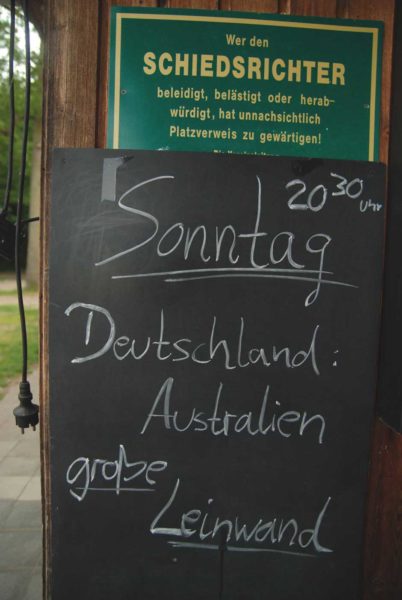 Wer den
SCHIEDSRICHTER
beleidigt, belästigt oder herab-
würdigt, hat unnachsichtlich
Platzverweis zu gewärtigen!
20 30 Uhr
Sonntag
Deutschland:
Australien
große
Leinwand